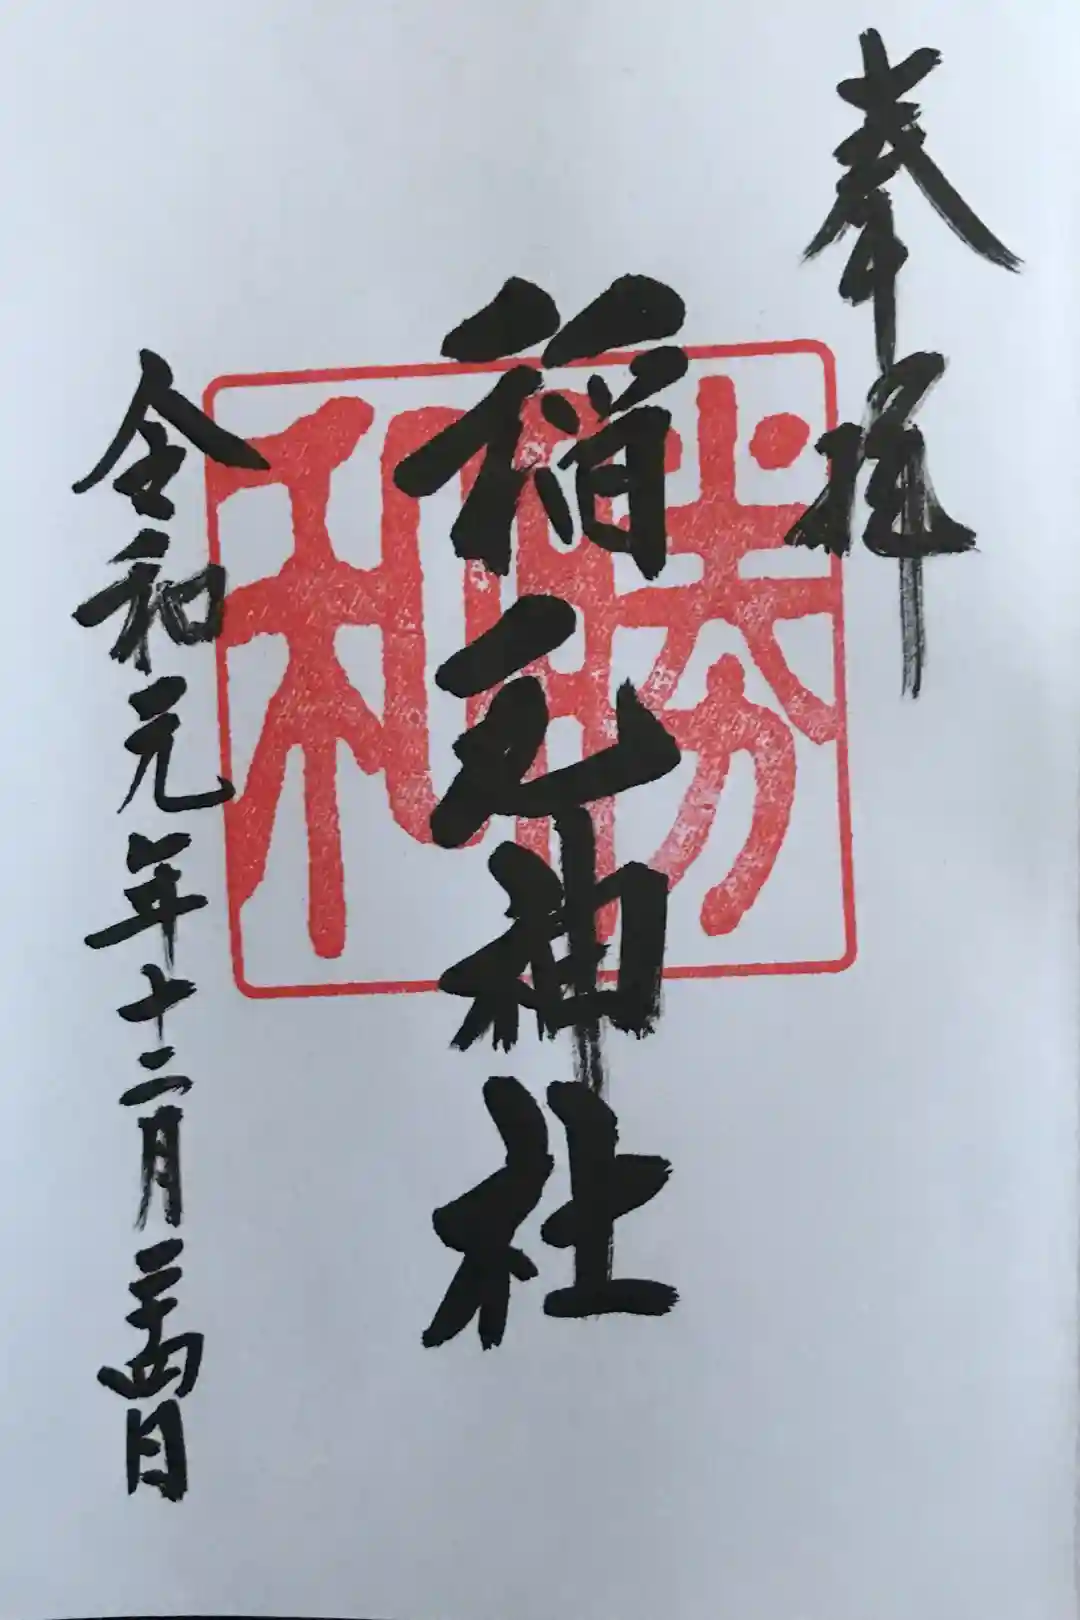 奉拝
勝和
稲毛神社
令和元年十二月二十四日